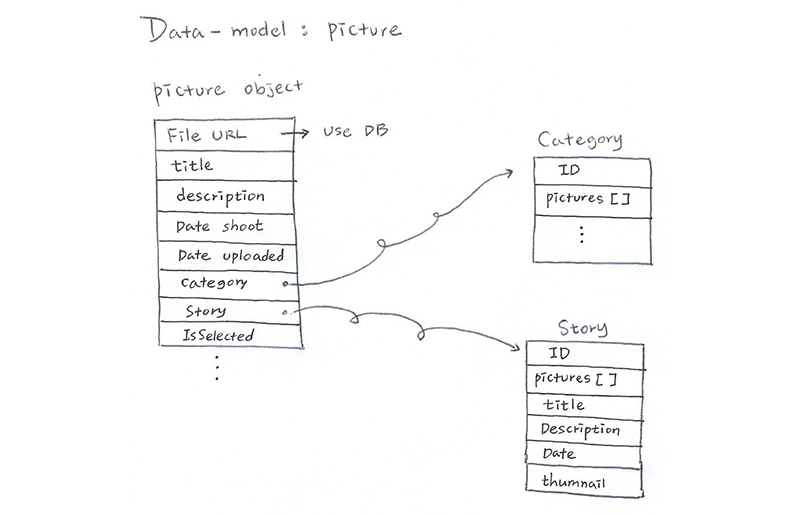 Data-model: picture
picture object
File URL → use DB
title
description
Date shoot
Date uploaded
category
Story
IsSelected
⋮
Category
ID
pictures []
⋮
Story
ID
pictures []
title
Description
Date
thumnail